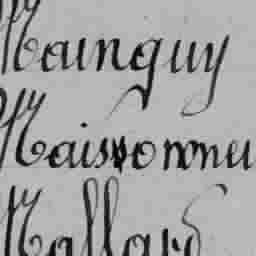 Mainguy
Maisonneu
Mallard